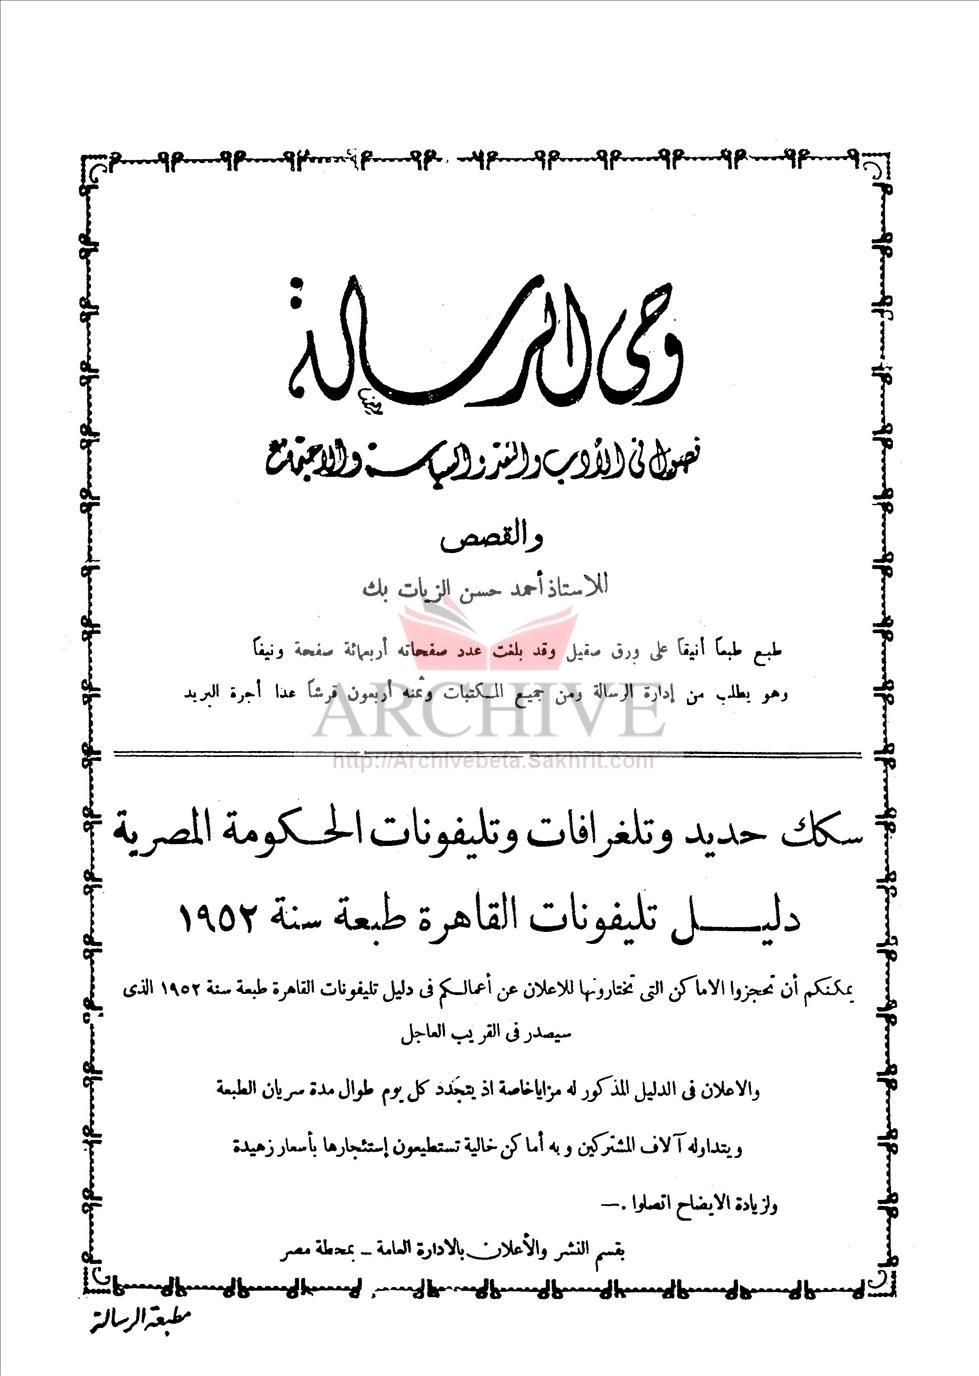 وحى الرسالة
فصول فى الأدب والنقد والسياسة والاجتماع
والقصص
للاستاذ أحمد حسن الزيات بك
طبع طبعاً أنيقاً على ورق صقيل وقد بلغت عدد صفحاته أربعمائة صفحة ونيفاً
وهو يطلب من إدارة الرسالة ومن جميع المكتبات وثمنه أربعون قرشاً عدا أجرة البريد
ARCHIVE
http://Archivebeta.Sakhrit.com
سكك حديد وتلغرافات وتليفونات الحكومة المصرية
دليل تليفونات القاهرة طبعة سنة ١٩٥٢
يمكنكم أن تحجزوا الاماكن التى تختارونها للاعلان عن أعمالكم فى دليل تليفونات القاهرة طبعة سنة ١٩٥٢ الذى
سيصدر فى القريب العاجل
والاعلان فى الدليل المذكور له مزايا خاصة اذ يتجدد كل يوم طوال مدة سريان الطبعة
ويتداوله آلاف المشتركين وبه أماكن خالية تستطيعون إستئجارها بأسعار زهيدة
ولزيادة الايضاح اتصلوا .—
بقسم النشر والأعلان بالادارة العامة – بمحطة مصر
مطبعة الرسالة